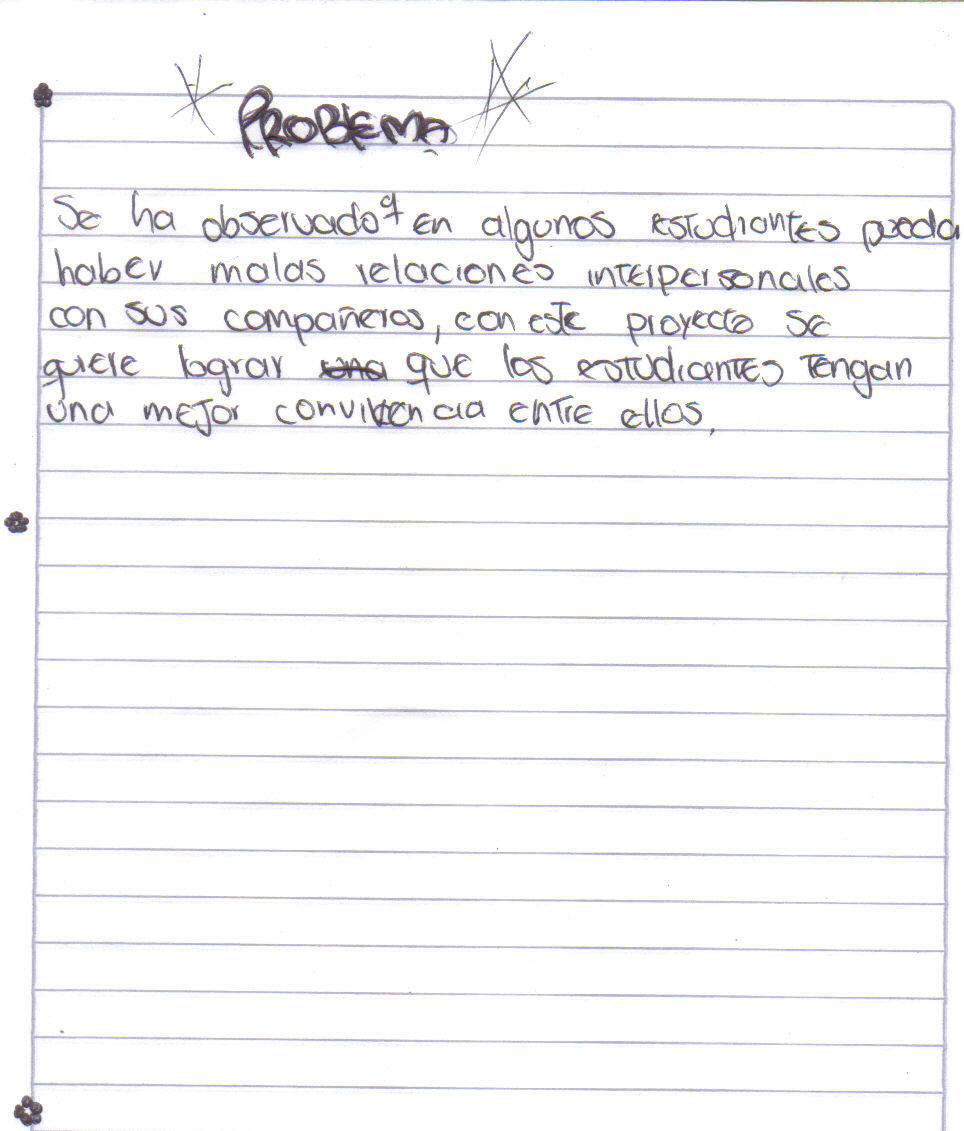 PROBLEMA
Se ha observado q en algunos estudiantes pueda
haber malas relaciones interpersonales
con sus compañeros, con este proyecto se
quiere lograr una que los estudiantes tengan
una mejor convivencia entre ellos.